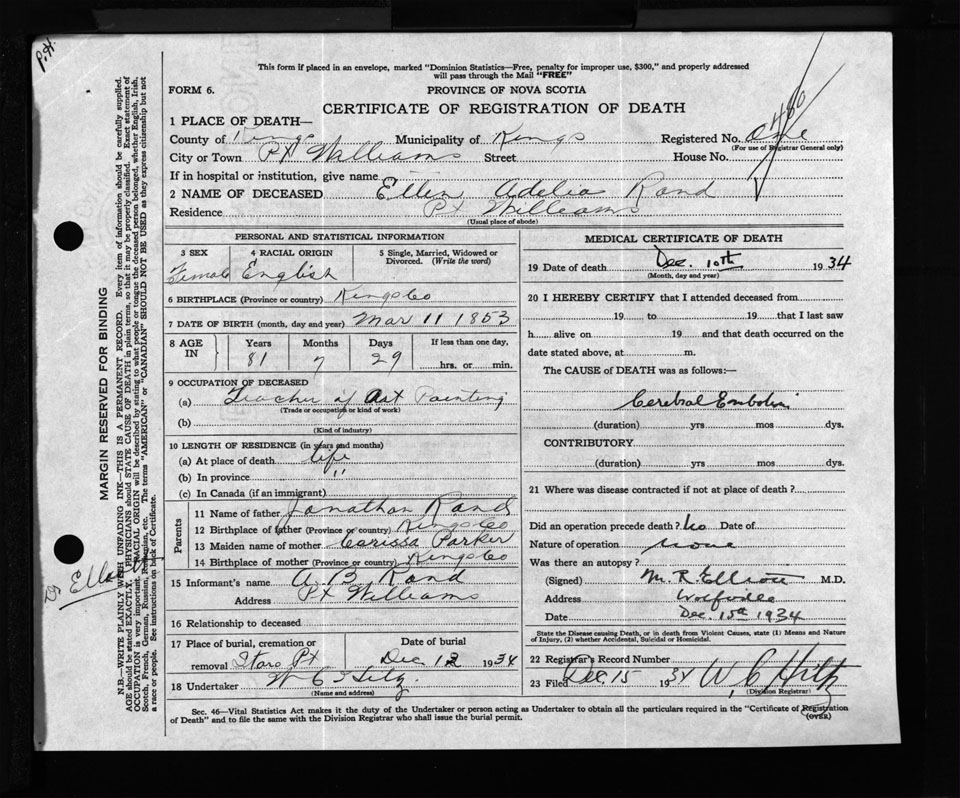 P.H.
This form if placed in an envelope, marked "Dominion Statistics—Free, penalty for improper use, $300," and properly addressed
will pass through the Mail "FREE"
FORM 6. PROVINCE OF NOVA SCOTIA
CERTIFICATE OF REGISTRATION OF DEATH
1 PLACE OF DEATH—
County of Kings Municipality of Kings Registered No. One 480
(For use of Registrar General only)
City or Town Pt Williams Street House No.
If in hospital or institution, give name
2 NAME OF DECEASED Ellen Adelia Rand
Residence Pt Williams
(Usual place of abode)
PERSONAL AND STATISTICAL INFORMATION
3 SEX 4 RACIAL ORIGIN 5 Single, Married, Widowed or
Divorced. (Write the word)
Female English
6 BIRTHPLACE (Province or country) Kings Co
7 DATE OF BIRTH (month, day and year) Mar 11 1853
8 AGE IN Years Months Days If less than one day,
81 7 29 hrs. or min.
9 OCCUPATION OF DECEASED
(a) Teacher of Art Painting
(Trade or occupation or kind of work)
(b)
(Kind of industry)
10 LENGTH OF RESIDENCE (in years and months)
(a) At place of death life
(b) In province "
(c) In Canada (if an immigrant)
Parents
11 Name of father Jonathan Rand
12 Birthplace of father (Province or country) Kings Co
13 Maiden name of mother Carissa Parker
14 Birthplace of mother (Province or country) Kings Co
15 Informant's name A. B. Rand
Address Pt Williams
16 Relationship to deceased
17 Place of burial, cremation or Date of burial
removal Stars Pt Dec 12 1934
18 Undertaker W C
(Name and address)
MEDICAL CERTIFICATE OF DEATH
19 Date of death Dec. 10th 1934
(Month, day and year)
20 I HEREBY CERTIFY that I attended deceased from
19 to 19 that I last saw
h alive on 19 and that death occurred on the
date stated above, at m.
The CAUSE of DEATH was as follows:—
Cerebral Embolism
(duration) yrs mos dys.
CONTRIBUTORY
(duration) yrs mos dys.
21 Where was disease contracted if not at place of death?
Did an operation precede death? No Date of
Nature of operation none
Was there an autopsy?
(Signed) M. R. Elliott M.D.
Address Wolfville
Date Dec. 15th 1934
State the Disease causing Death, or in death from Violent Causes, state (1) Means and Nature
of Injury, (2) whether Accidental, Suicidal or Homicidal.
22 Registrar's Record Number
23 Filed Dec. 15 1934 W C
(Division Registrar)
Sec. 46—Vital Statistics Act makes it the duty of the Undertaker or person acting as Undertaker to obtain all the particulars required in the "Certificate of Registration
of Death" and to file the same with the Division Registrar who shall issue the burial permit. (OVER)
MARGIN RESERVED FOR BINDING
N.B.—WRITE PLAINLY WITH UNFADING INK—THIS IS A PERMANENT RECORD. Every item of information should be carefully supplied.
AGE should be stated EXACTLY. PHYSICIANS should STATE CAUSE OF DEATH in plain terms, so that it may be properly classified. Exact statement of
OCCUPATION is very important. RACIAL ORIGIN will be described by stating to what people or tongue the deceased person belonged, whether English, Irish,
Scotch, French, German, Russian, Ruthenian, etc. The terms "AMERICAN" or "CANADIAN" SHOULD NOT BE USED as they express citizenship but not
a race or people. See instructions on back of Certificate.